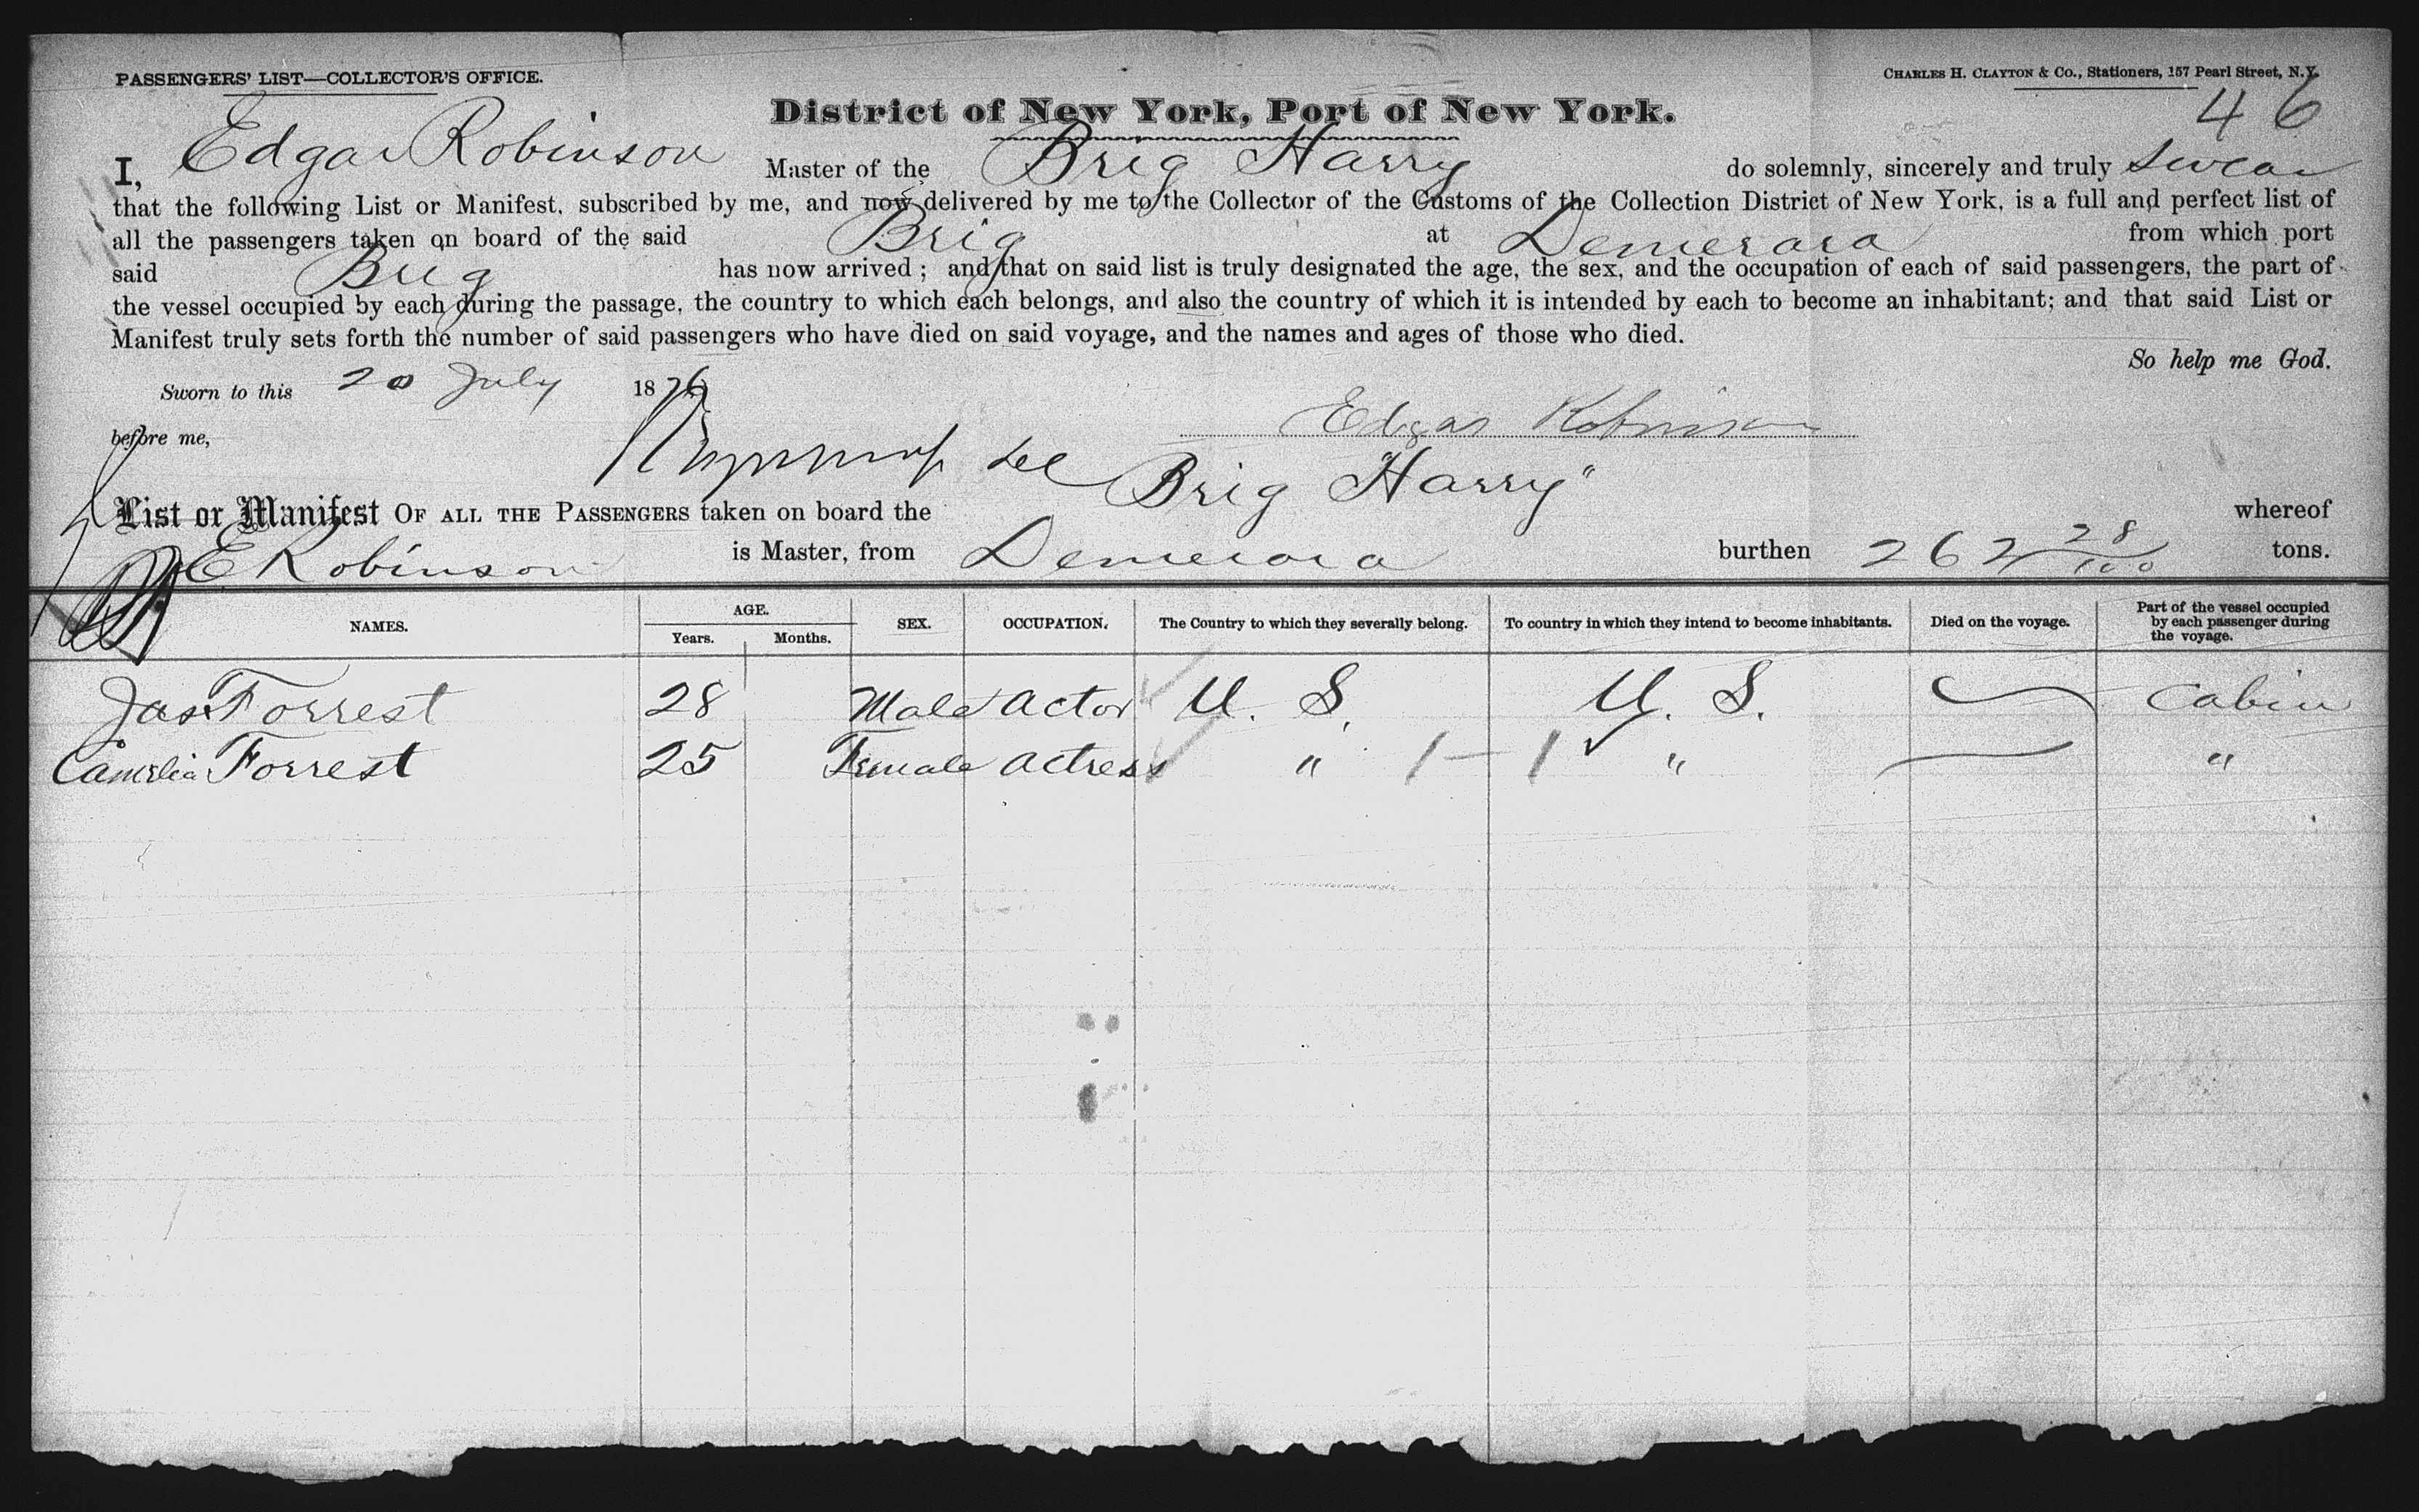 PASSENGERS' LIST—COLLECTOR'S OFFICE.
CHARLES H. CLAYTON & CO., Stationers, 157 Pearl Street, N.Y.
46
District of New York, Port of New York.
I, Edgar Robinson Master of the Brig Harry do solemnly, sincerely and truly swear
that the following List or Manifest, subscribed by me, and now delivered by me to the Collector of the Customs of the Collection District of New York, is a full and perfect list of
all the passengers taken on board of the said Brig at Demerara from which port
said Brig has now arrived ; and that on said list is truly designated the age, the sex, and the occupation of each of said passengers, the part of
the vessel occupied by each during the passage, the country to which each belongs, and also the country of which it is intended by each to become an inhabitant; and that said List or
Manifest truly sets forth the number of said passengers who have died on said voyage, and the names and ages of those who died.
So help me God.
Sworn to this 20 July 1876
before me,
Edgar Robinson
List or Manifest OF ALL THE PASSENGERS taken on board the Brig "Harry" whereof
E Robinson is Master, from Demerara burthen 262 28/100 tons.
NAMES. AGE. Years. Months. SEX. OCCUPATION. The Country to which they severally belong. To country in which they intend to become inhabitants. Died on the voyage. Part of the vessel occupied by each passenger during the voyage.
Jas Forrest 28 Male Actor U. S. U. S. Cabin
Camelia Forrest 25 Female Actress " 1 — 1 " "